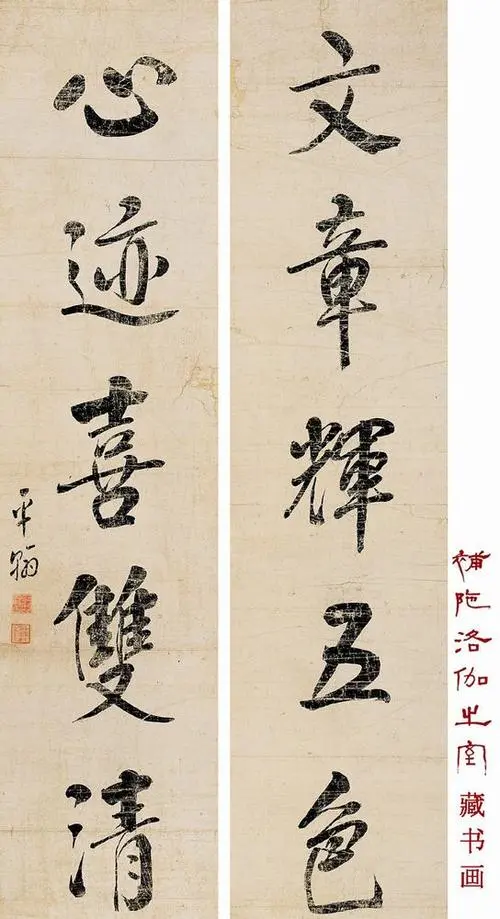 文章輝五色
心迹喜雙清
平翰
補陀洛伽之室藏书画